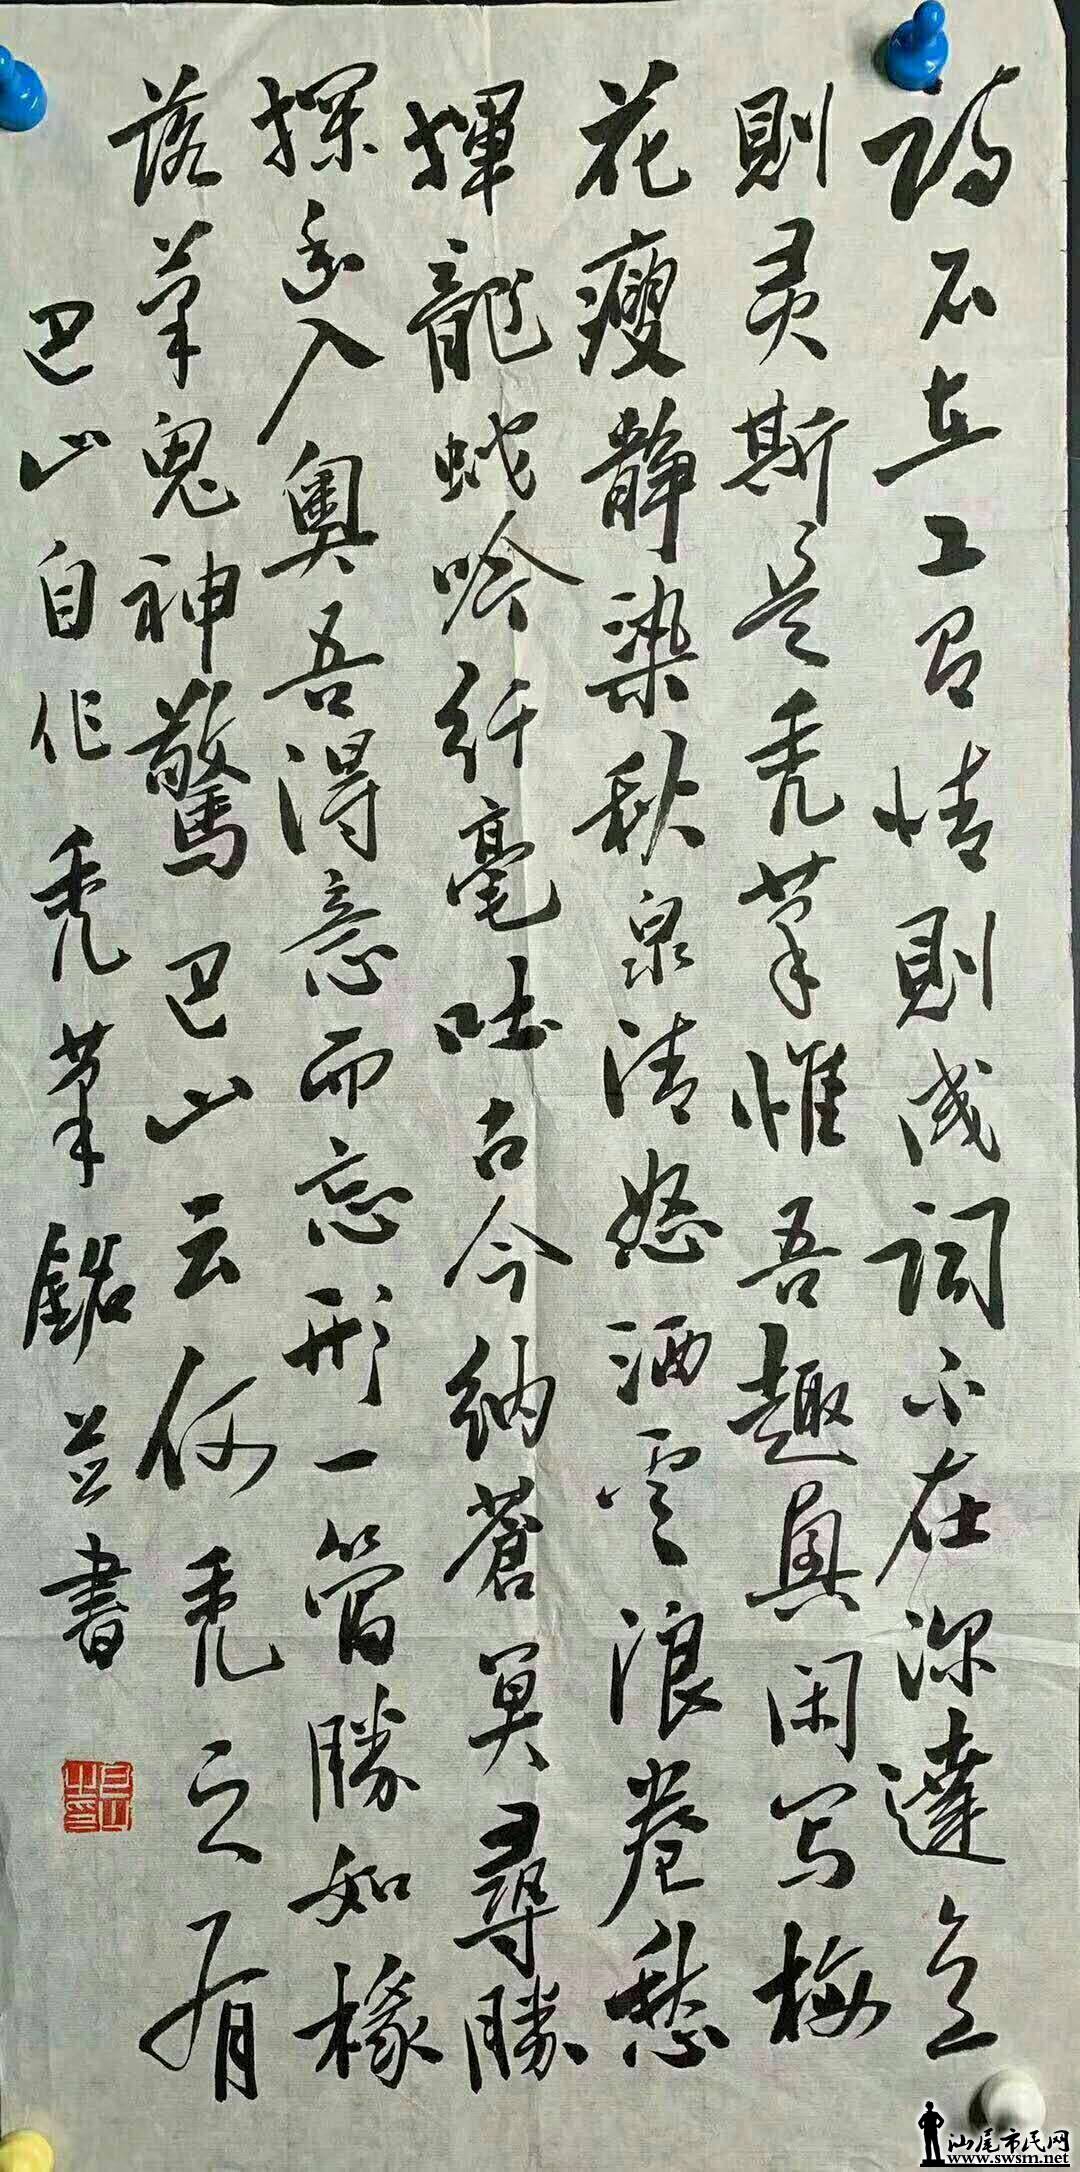 诗不在工寫情則成詞不在深達意
則灵斯是秃筆惟吾趣真闲写梅
花瘦靜染秋泉清怒洒雲浪卷愁
揮龍蛇吟纤毫吐古今纳蒼冥尋勝
探幽入奥吾得意而忘形一管勝如椽
落筆鬼神驚巴山云何秃之有
巴山自作秃筆銘并書
汕尾市民网
www.swsm.net